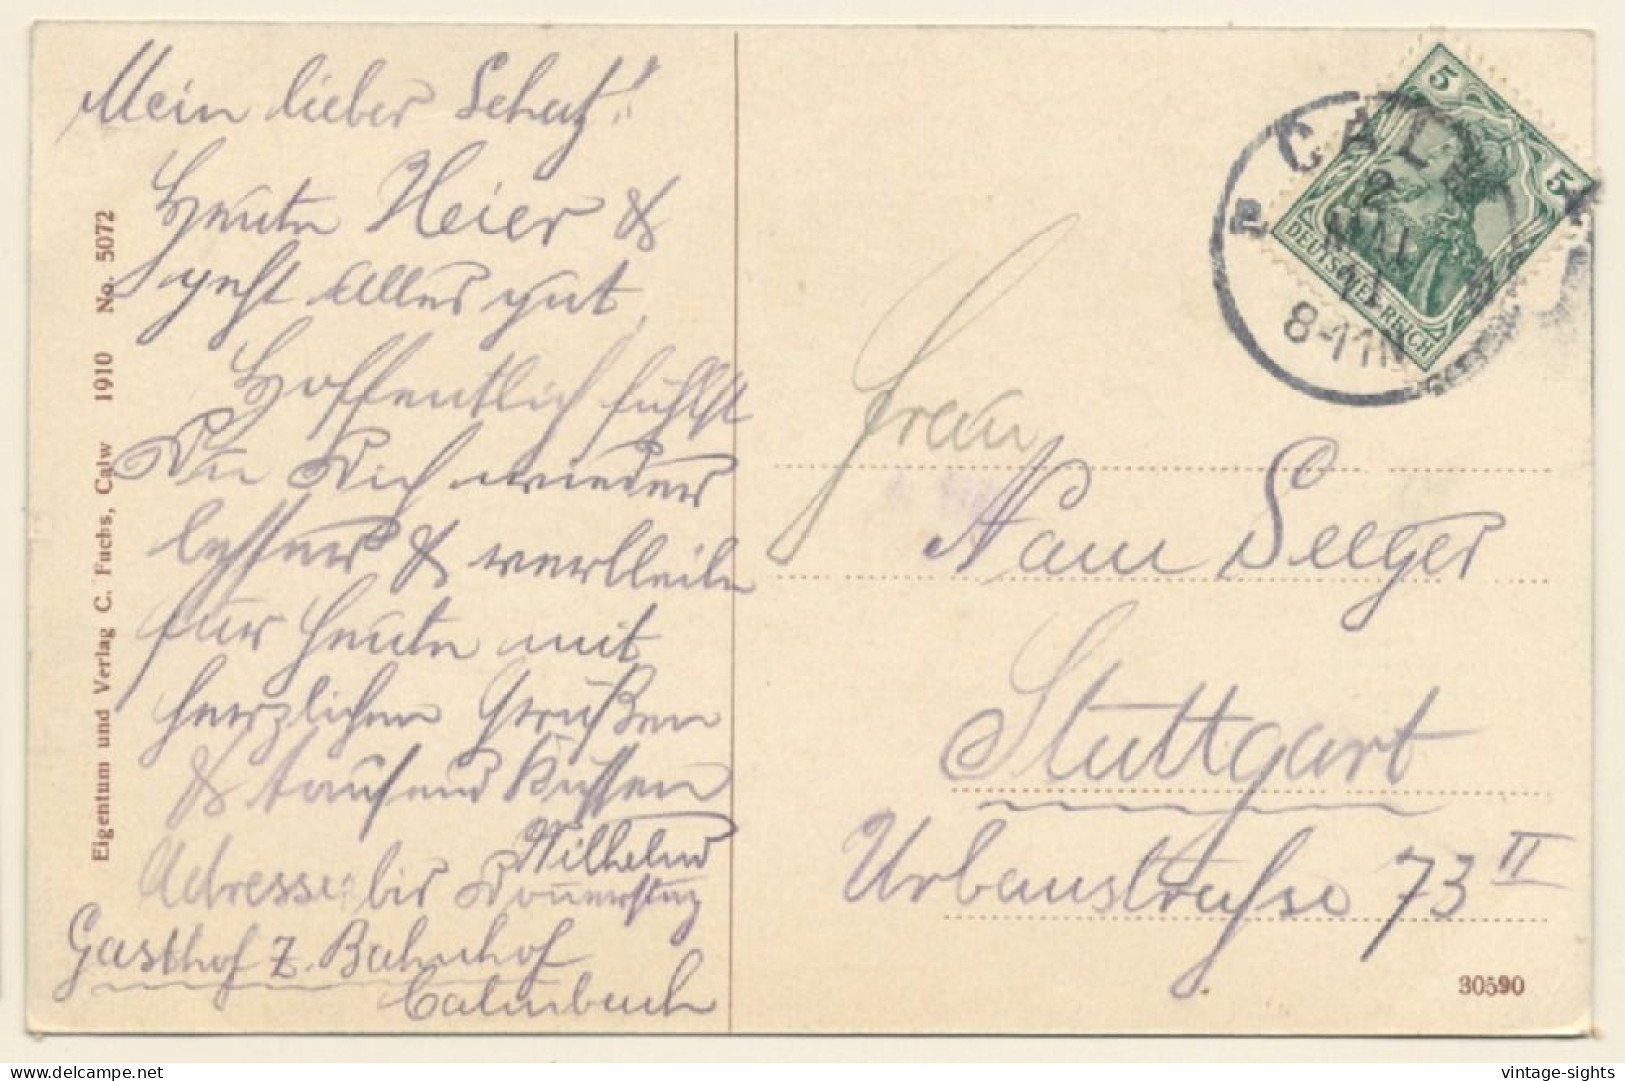 Mein lieber Schatz!
Heute Heier &
geht Alles gut,
Hoffentlich fühlst
Du Dich wieder
besser & verbleibe
für heute mit
herzlichen Grüßen
& tausend Küssen
Wilhelm
Adresse bis Donnerstag
Gasthof z. Bahnhof
Calmbach
Eigentum und Verlag C. Fuchs, Calw 1910 No. 5072
CALW
2
MAI
11
8-11N
5
5
DEUTSCHES REICH
Frau
Nam Seeger
Stuttgart
Urbanstraße 73 II
30590
vintage-sights